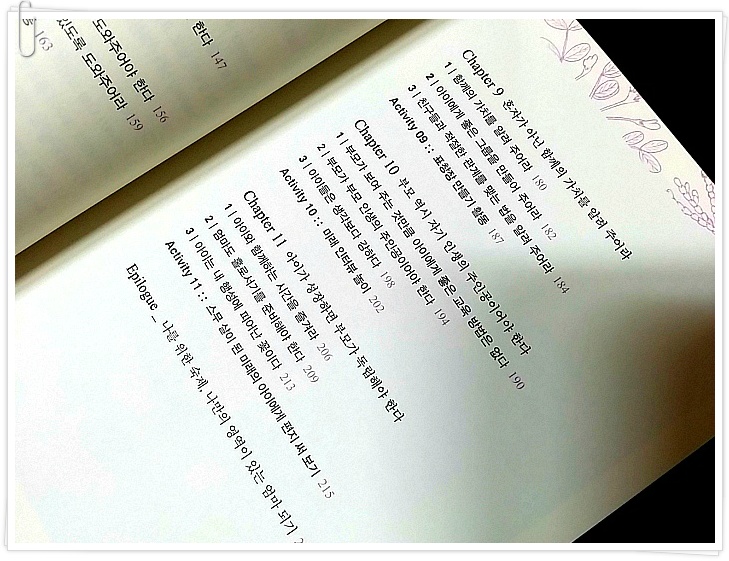 163
있도록 도와주어라 159
도와주어야 한다 156
한다 147
Chapter 9 혼자가 아닌 함께의 가치를 알려 주어라
1 | 함께의 가치를 알려 주어라 180
2 | 아이에게 좋은 그룹을 만들어 주어라 182
3 | 친구들과 적절한 관계를 맺는 법을 알려 주어라 184
Activity 09 :: 표창장 만들기 활동 187
Chapter 10 부모 역시 자기 인생의 주인공이어야 한다
1 | 부모가 보여 주는 것만큼 아이에게 좋은 교육 방법은 없다 190
2 | 부모가 부모 인생의 주인공이어야 한다 194
3 | 아이들은 생각보다 강하다 198
Activity 10 :: 미래 인터뷰 놀이 202
Chapter 11 아이가 성장하면 부모가 독립해야 한다
1 | 아이와 함께하는 시간을 즐겨라 206
2 | 엄마도 홀로서기를 준비해야 한다 209
3 | 아이는 내 행성에 피어난 꽃이다 213
Activity 11 :: 스무 살이 된 미래의 아이에게 편지 써 보기 215
Epilogue _ 나를 위한 숙제, 나만의 영역이 있는 엄마 되기